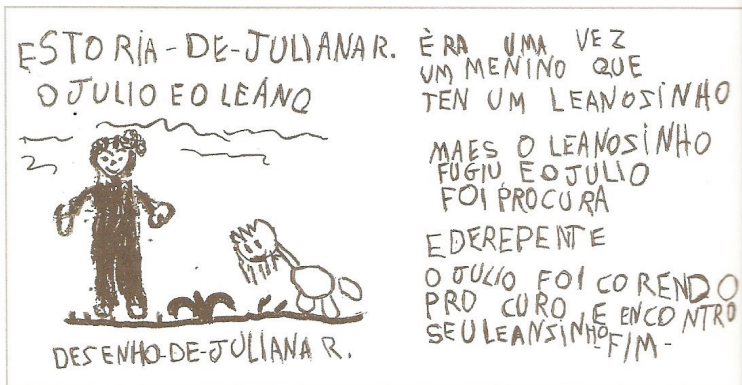 ESTORIA-DE-JULIANA R.
O JULIO E O LEÁNO
DESENHO-DE-JULIANA R.
ÈRA UMA VEZ
UM MENINO QUE
TEN UM LEANOSINHO
MAES O LEANOSINHO
FUGIU E O JULIO
FOI PROCURA
E DEREPENTE
O JULIO FOI CORENDO
PRO CURO, E ENCONTRO
SEU LEANSINHO
-FIM-